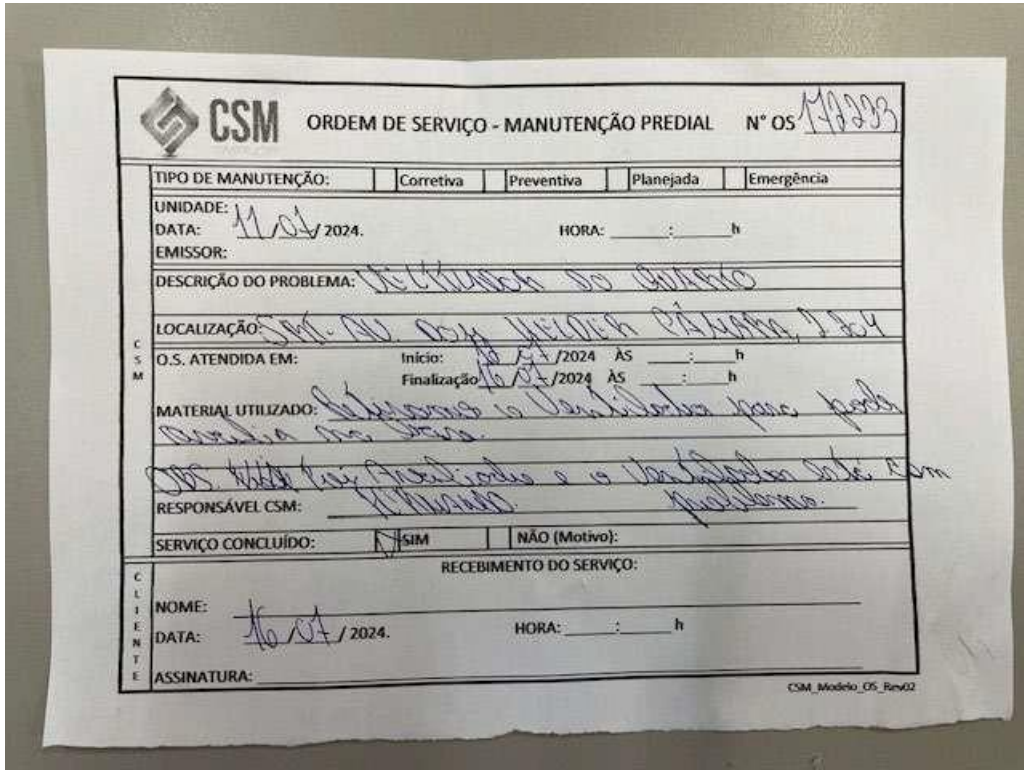 CSM ORDEM DE SERVIÇO - MANUTENÇÃO PREDIAL N° OS 172233
TIPO DE MANUTENÇÃO: Corretiva Preventiva Planejada Emergência
UNIDADE:
DATA: 11/07/2024. HORA: ____:____h
EMISSOR:
DESCRIÇÃO DO PROBLEMA: do quarto
LOCALIZAÇÃO:
CSM
O.S. ATENDIDA EM: Início: 16/07/2024 ÀS ____:____h
Finalização 16/07/2024 ÀS ____:____h
MATERIAL UTILIZADO: o Ventilador para poder
OBS. foi e o Ventilador está com
RESPONSÁVEL CSM: problema.
SERVIÇO CONCLUÍDO: SIM NÃO (Motivo):
CLIENTE
RECEBIMENTO DO SERVIÇO:
NOME:
DATA: 16/07/2024. HORA: ____:____h
ASSINATURA:
CSM_Modelo_OS_Rev02